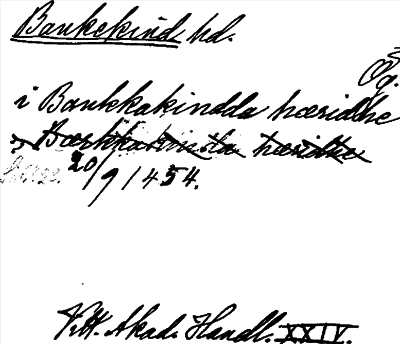 Bankekind hd.
Ög.
i Bankkakindda hæridhe
Bærkkakinda hæridhe
20/9 1454.
V.H. Akad. Handl. XXIV.